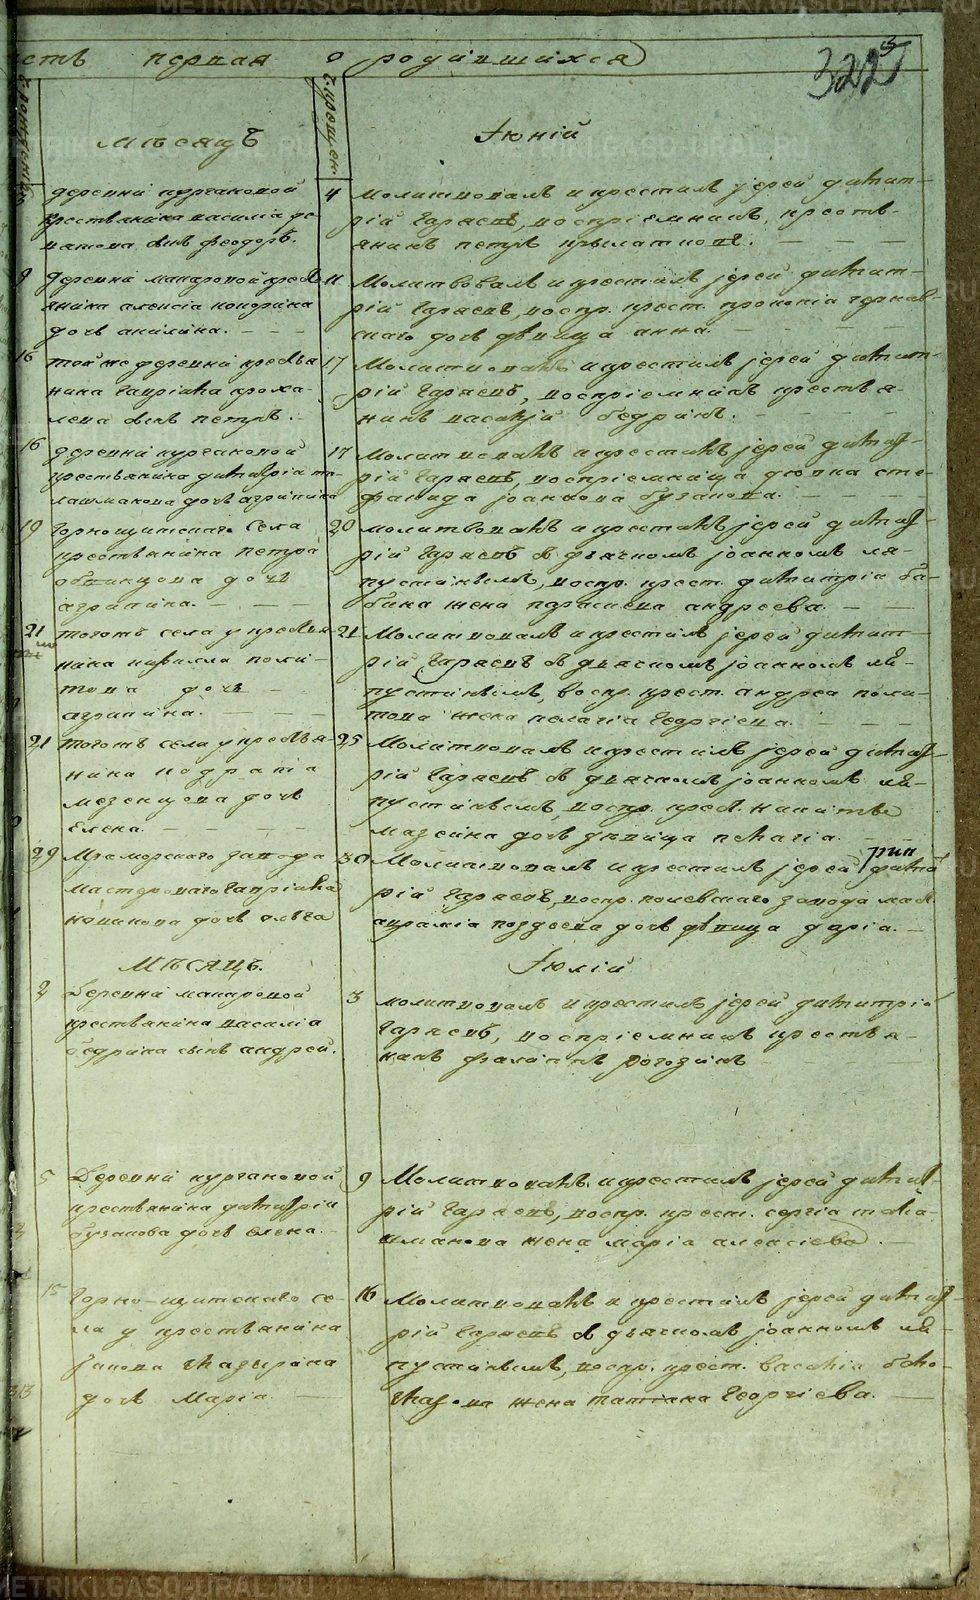 METRIKI.GASO-URAL.RU
сть первая о родившихся
3225
мѣсяцъ Іюній
деревни кургановой
крестьянина василіа
сынъ феодоръ.
4 молитвовалъ и крестилъ іерей димит-
рій Карпевъ, воспріемникъ, кресть-
янинъ петръ
9 деревни макаровой крест
янина алексіа кондрина
дочь акилина.
11 Молитвовалъ и крестилъ іерей димит-
рій воспр. крест. прокопіа чернав-
скаго дочь дѣвица анна.
16 той же деревни крестья
нина Гавріила проха-
лева сынъ петръ.
17 Молитвовалъ и крестилъ іерей димит-
рій воспріемникъ крестья-
нинъ василій бедринъ.
16 деревни кургановой
крестьянина димитріа
дочь агрипина
17 Молитвовалъ и крестилъ іерей димит-
рій воспріемница девка сте-
фанида іоаннова бузанова.
19 Горнощитскаго Села
крестьянина петра
дочь
агрипина.
20 молитвовалъ и крестилъ іерей димит-
рій съ дьячкомъ іоанномъ ля-
пустинымъ, воспр. крест. димитріа ба-
бина жена параскева андреева.
21 тогожъ села у крестья
нина кирилла поли-
това дочь
агрипина.
21 Молитвовалъ и крестилъ іерей димит-
рій съ дьячкомъ іоанномъ ля-
пустинымъ, воспр. крест. андрея поли-
това жена пелагіа Георгіева.
21 тогожъ села у крестья-
нина кодратіа
мезенцова дочь
Елена.
25 Молитвовалъ и крестилъ іерей димит-
рій съ дьячкомъ іоанномъ ля-
пустинымъ, воспр. крест. никиты
мазеина дочь дѣвица пелагіа.
29 Мраморскаго завода
мастероваго Гавріила
новикова дочь ольга
30 Молитвовалъ и крестилъ іерей
рій воспр. полевскаго завода маст.
авраміа поздеева дочь дѣвица даріа.
Мѣсяцъ. Іюлій
2 Деревни макаровой
крестьянина василіа
бедрина сынъ андрей.
3 молитвовалъ и крестилъ іерей димитрій
воспріемникъ крестья-
нинъ рогозинъ
5 Деревни кургановой
крестьянина димитріа
бузанова дочь елена.
9 Молитвовалъ и крестилъ іерей димит-
рій воспр. крест. сергіа
жена маріа алексіева.
15 Горно-щитскаго се-
ла у крестьянина
іакова
дочь Маріа
16 Молитвовалъ и крестилъ іерей димит-
рій съ дьячкомъ іоанномъ ля-
пустинымъ, воспр. крест. василіа
жена татіана Георгіева.